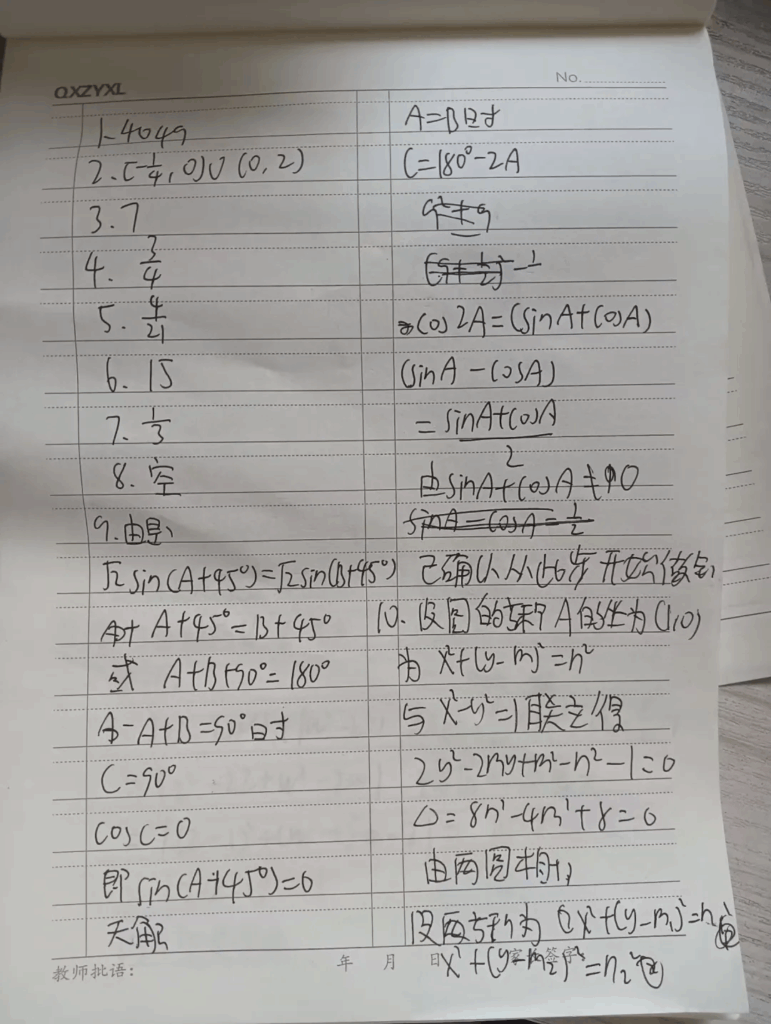 QXZYXL
No.
1. 4049
2. [-1/4, 0)∪(0, 2)
3. 7
4. 3/4
5. 4/21
6. 15
7. 1/3
8. 空
9. 由题
√2 sin(A+45°)=√2 sin(B+45°)
A+45°=B+45°
或 A+B+90°=180°
A+B=90°时
C=90°
cosC=0
即 sin(A+45°)=0
无解
A=B时
C=180°-2A
cos2A=(sinA+cosA)
(sinA-cosA)
= (sinA+cosA)/2
由sinA+cosA≠0
sinA-cosA=1/2
已确认从此步开始
10. 设圆的 A 为(1,0)
为 x²+(y-m)²=n²
与x²-y²=1联立得
2y²-2my+m²-n²-1=0
Δ=8n²-4m²+8=0
由两圆相切
设两方程为 x²+(y-m₁)²=n₁²①
x²+(y-m₂)²=n₂²②
教师批语: 年 月 日 家长签字